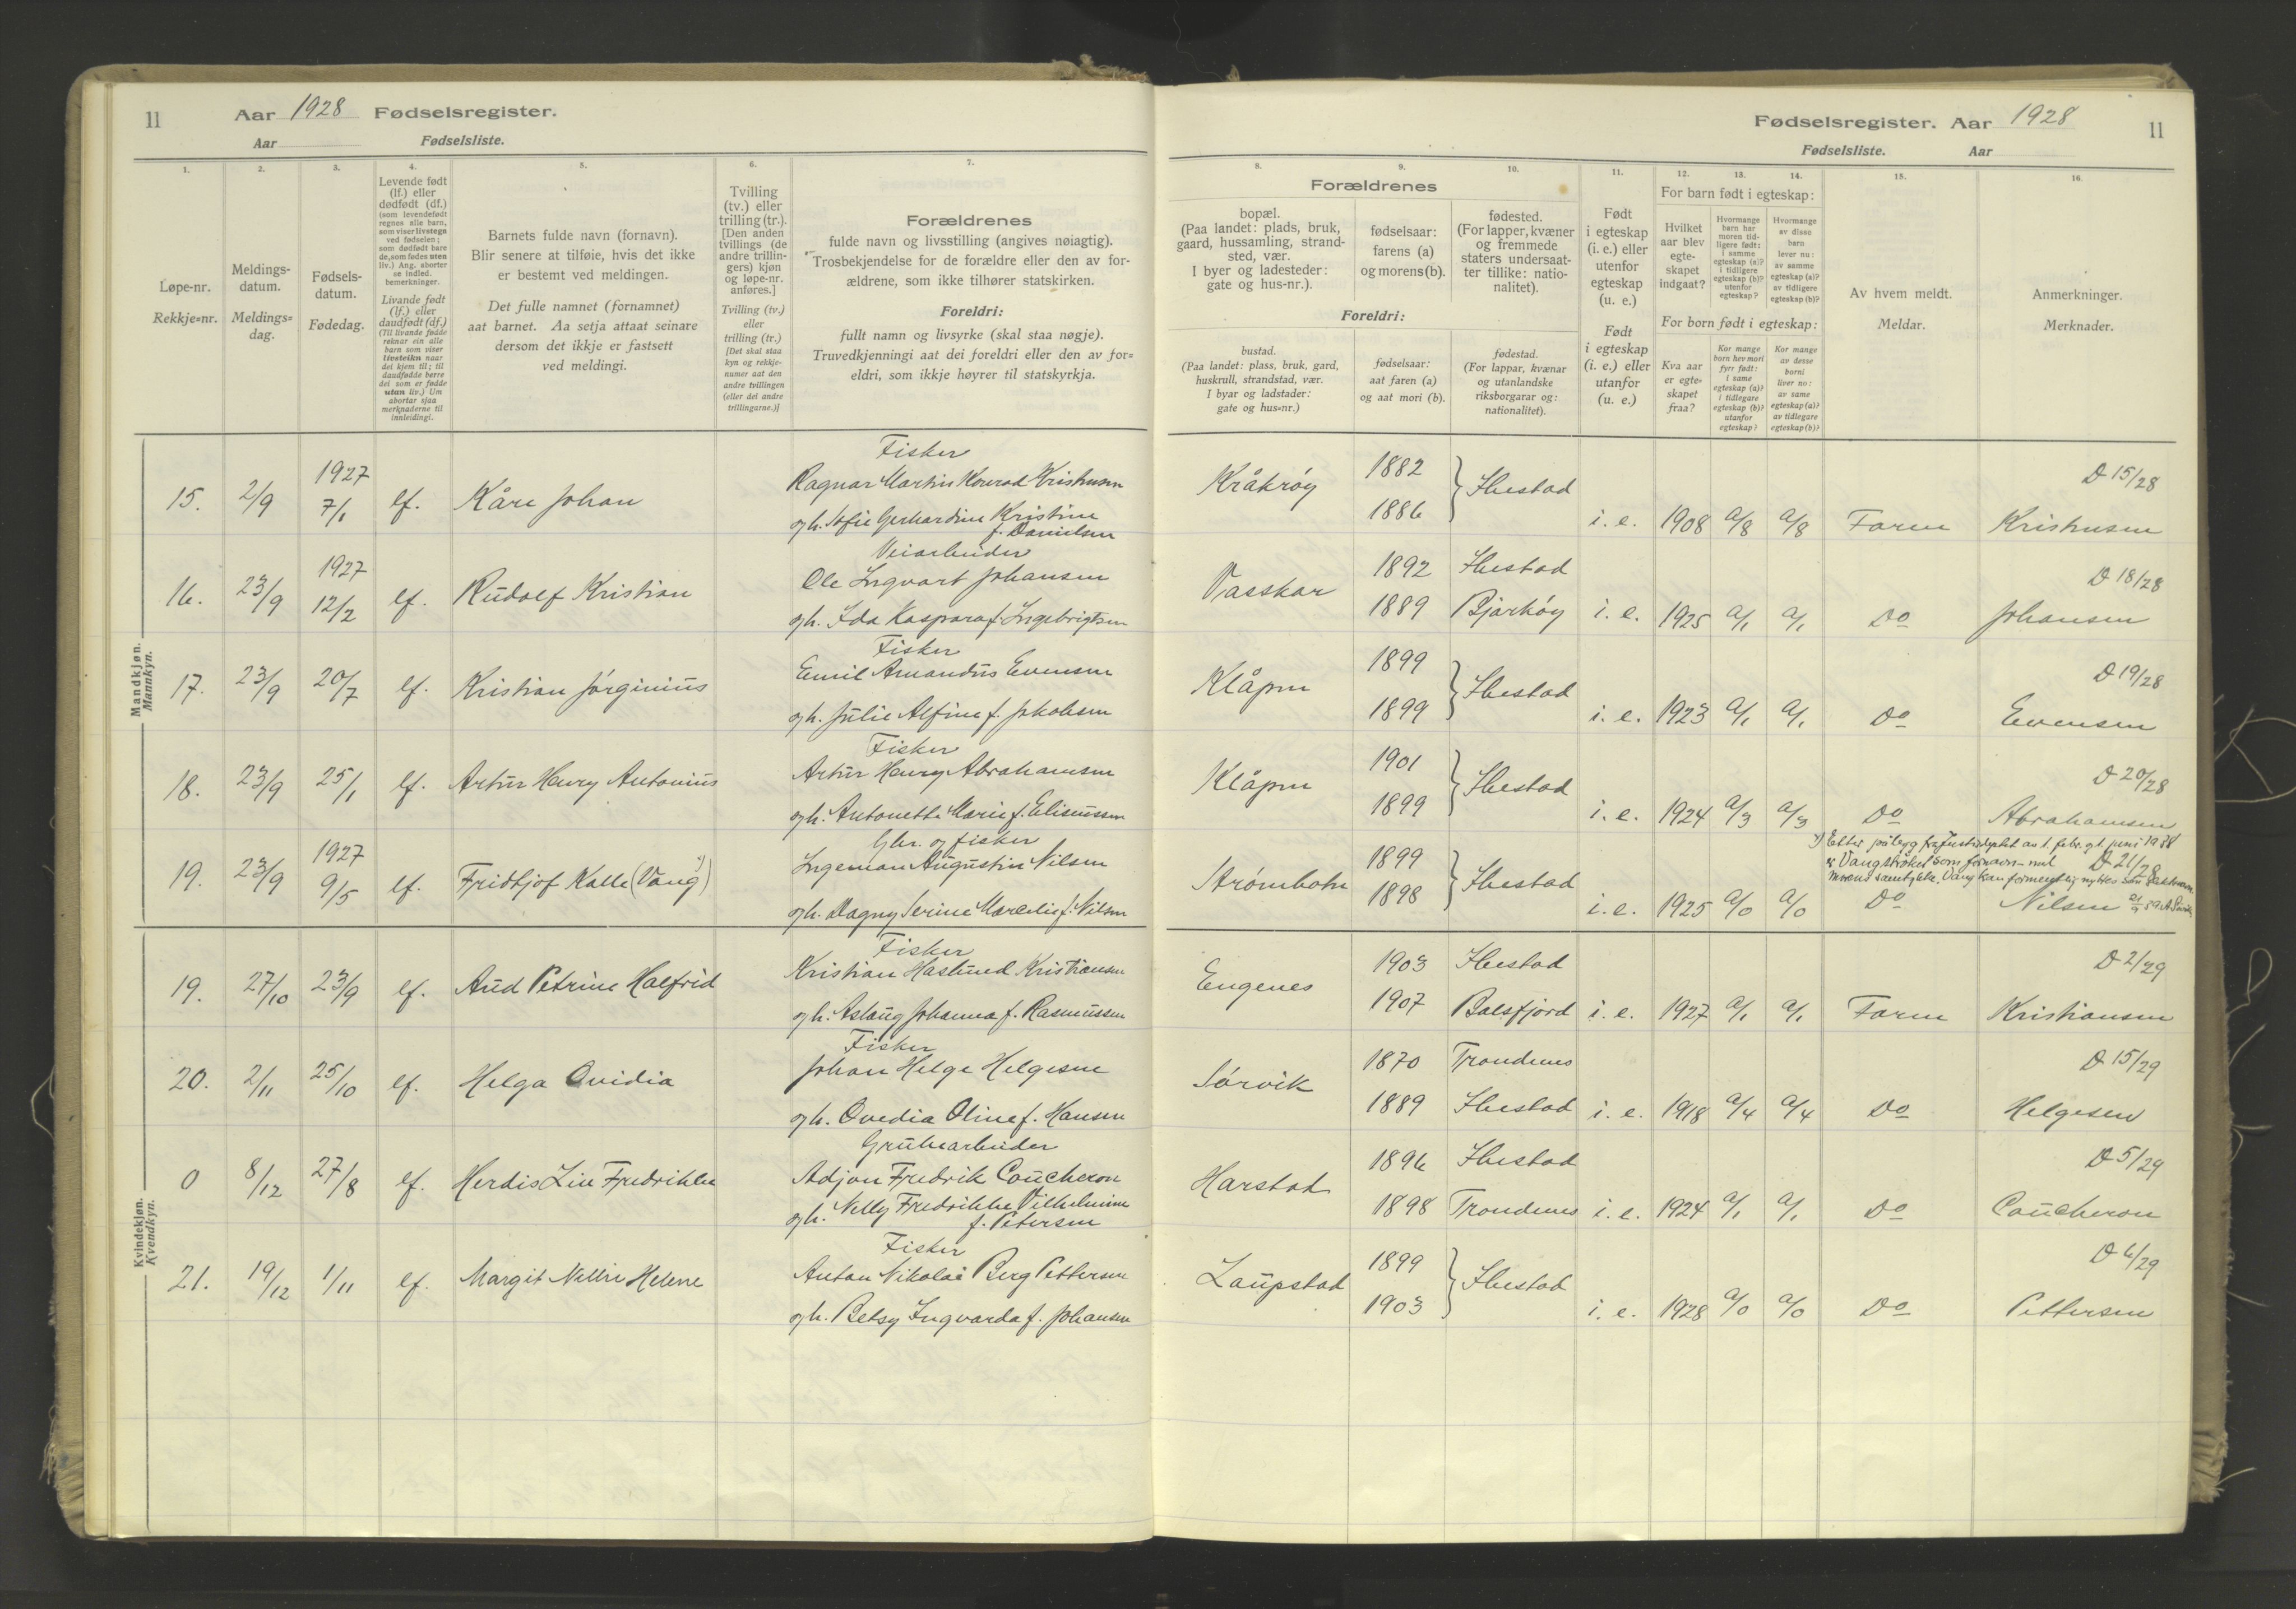 11 Aar 1928 Fødselsregister.
Aar Fødselsliste.
1. 2. 3. 4. 5. 6. 7.
Løpe-nr.
Rekkje-nr.
Meldings-
datum.
Meldings-
dag.
Fødsels-
datum.
Fødedag.
Levende født
(lf.) eller
dødfødt (df.)
(som levendefødt
regnes alle barn,
som viser livstegn
ved fødselen;
som dødfødt bare
de, som fødes uten
liv.) Ang. aborter
se indled.
bemerkninger.
Livande født
(lf.) eller
daudfødt (df.)
(Til livande fødde
reknar ein alle
barn som viser
livsteikn naar
dei kjem til; til
daudfødde berre
dei som er fødde
utan liv.) Um
abortar sjaa
merknaderne til
innleidingi.
Barnets fulde navn (fornavn).
Blir senere at tilføie, hvis det ikke
er bestemt ved meldingen.
Det fulle namnet (fornamnet)
aat barnet. Aa setja attaat seinare
dersom det ikkje er fastsett
ved meldingi.
Tvilling
(tv.) eller
trilling (tr.).
[Den anden
tvillings (de
andre trillin-
gers) kjøn
og løpe-nr.
anføres.]
Tvilling (tv.)
eller
trilling (tr.)
[Det skal staa
kyn og rekkje-
numer aat den
andre tvillingen
(eller dei andre
trillingarne.)]
Forældrenes
fulde navn og livsstilling (angives nøiagtig).
Trosbekjendelse for de forældre eller den av for-
ældrene, som ikke tilhører statskirken.
Foreldri:
fullt namn og livsyrke (skal staa nøgje).
Truvedkjenningi aat dei foreldri eller den av for-
eldri, som ikkje høyrer til statskyrkja.
Mandkjøn.
Mannkyn.
Fisker
15. 2/9 1927 7/1 lf. Kåre Johan Ragnar Martin Konrad Kristensen
og h. Sofie Gerhardine Kristine
f. Danielsen
Veiarbeider
16. 23/9 1927 12/2 lf. Rudolf Kristian Ole Ingvart Johansen
og h. Ida Kaspara f. Ingebrigtsen
Fisker
17. 23/9 20/7 lf. Kristian Jørginius Emil Amandus Evensen
og h. Julie Alfine f. Jakobsen
Fisker
18. 23/9 25/1 lf. Artur Henry Antonius Artur Henry Abrahamsen
og h. Antonette Marie f. Eliseussen
Gbr. og fisker
19. 23/9 1927 9/5 lf. Fridtjof Kalle (Vang) Ingeman Augustin Nilsen
og h. Dagny Serine Marelie f. Nilsen
Kvindekjøn.
Kvendkyn.
Fisker
19. 27/10 23/9 lf. Aud Petrine Halfrid Kristian Haslund Kristiansen
og h. Aslaug Johanna f. Rasmussen
Fisker
20. 2/11 25/10 lf. Helga Ovidia Johan Helge Helgesen
og h. Ovedia Oline f. Hansen
Grubearbeider
0 8/12 27/8 lf. Herdis Liv Fredrikke Adjon Fredrik Coucheron
og h. Nelly Fredrikke Vilhelmine
f. Petersen
Fisker
21. 19/12 1/11 lf. Margit Nellie Helene Anton Nikolai Berg Pettersen
og h. Betsy Ingvarda f. Johansen
Fødselsregister. Aar 1928 11
Fødselsliste. Aar
8. 9. 10. 11. 12. 13. 14. 15. 16.
Forældrenes
bopæl.
(Paa landet: plads, bruk,
gaard, hussamling, strand-
sted, vær.
I byer og ladesteder:
gate og hus-nr.).
fødselsaar:
farens (a)
og morens (b).
fødested.
(For lapper, kvæner
og fremmede
staters undersaat-
ter tillike: natio-
nalitet).
Foreldri:
bustad.
(Paa landet: plass, bruk, gard,
huskrull, strandstad, vær.
I byar og ladstader:
gate og hus-nr.)
fødselsaar:
aat faren (a)
og aat mori (b).
fødestad.
(For lappar, kvænar
og utanlandske
riksborgarar og:
nationalitet).
Født
i egteskap
(i. e.) eller
utenfor
egteskap
(u. e.)
Født
i egteskap
(i. e.) eller
utanfor
(u. e.)
For barn født i egteskap:
Hvilket
aar blev
egte-
skapet
indgaat?
Hvormange
barn har
moren tid-
ligere født:
i samme
egteskap (a)?
i tidligere
egteskap (b)?
utenfor
egteskap?
Hvormange
av disse
barn
lever nu:
av samme
egteskap (a)?
av tidligere
egteskap (b)?
For born født i egteskap:
Kva aar
er egte-
skapet
fraa?
Kor mange
born hev mori
fyrr født:
i same
egteskap (a)?
i tidlegare
egteskap (b)?
utanfor
egteskap?
Kor mange
av desse
borni
liver no:
av same
egteskap (a)?
av tidlegare
egteskap (b)?
Av hvem meldt.
Meldar.
Anmerkninger.
Merknader.
Kråkrøy 1882 1886 Ibestad i. e. 1908 a/8 a/8 Faren D 15/28 Kristensen
Vasskar 1892 Ibestad 1889 Bjarkøy i. e. 1925 a/1 a/1 Do D 18/28 Johansen
Klåpen 1899 1899 Ibestad i. e. 1923 a/1 a/1 Do D 19/28 Evensen
Klåpen 1901 1899 Ibestad i. e. 1924 a/3 a/3 Do D 20/28 Abrahamsen
Etter påbygg fra Justisdeptet av 1. febr. jf. juni 1938
er Vang strøket som fornavn - med D 21/28
morens samtykke. Vang kan forment­lig nyttes som
Strømbotn 1899 1898 Ibestad i. e. 1925 a/0 a/0 Do Nilsen
Engenes 1903 Ibestad 1907 Balsfjord i. e. 1927 a/1 a/1 Faren D 2/29 Kristiansen
Sørvik 1870 Trondenes 1889 Ibestad i. e. 1918 a/4 a/4 Do D 15/29 Helgesen
Harstad 1896 Ibestad 1898 Trondenes i. e. 1924 a/1 a/1 Do D 5/29 Coucheron
Laupstad 1899 1903 Ibestad i. e. 1928 a/0 a/0 Do D 6/29 Pettersen